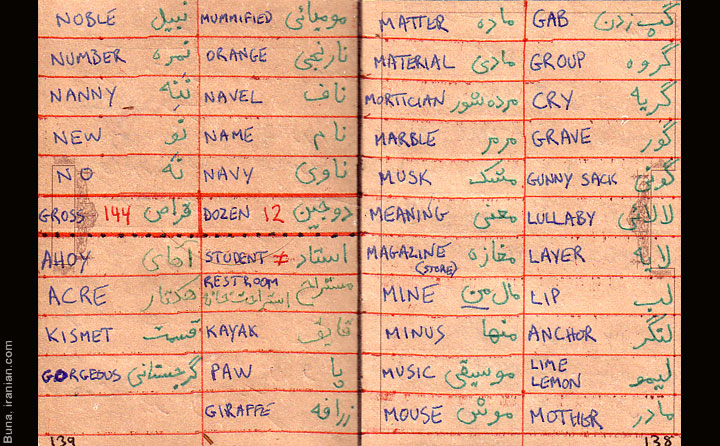 NOBLE نبیل MUMMIFIED مومیائی
NUMBER نمره ORANGE نارنجی
NANNY ننه NAVEL ناف
NEW نو NAME نام
NO نه NAVY ناوی
GROSS 144 قراص DOZEN 12 دوجین
AHOY آهای STUDENT ≠ استاد
ACRE هکتار RESTROOM مستراح
KISMET قسمت KAYAK قایق
GORGEOUS گرجستانی PAW پا
GIRAFFE زرافه
139
MATTER ماده GAB گپ زدن
MATERIAL مادی GROUP گروه
MORTICIAN مرده شور CRY گریه
MARBLE مرمر GRAVE گور
MUSK مشک GUNNY SACK گونی
MEANING معنی LULLABY لالائی
MAGAZINE (STORE) مغازه LAYER لایه
MINE مال من LIP لب
MINUS منها ANCHOR لنگر
MUSIC موسیقی LIME LEMON لیمو
MOUSE موش MOTHER مادر
138
Buna, iranian.com